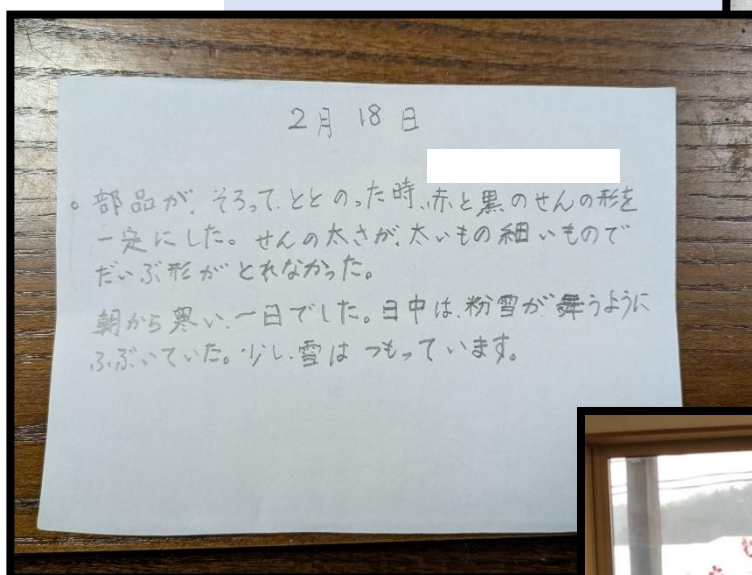 2月 18日
。部品が、そろって、ととのった時、赤と黒のせんの形を
一定にした。せんの太さが、太いもの細いもので
だいぶ形がとれなかった。
朝から寒い、一日でした。日中は、粉雪が、舞うように
ふぶいていた。少し、雪はつもっています。